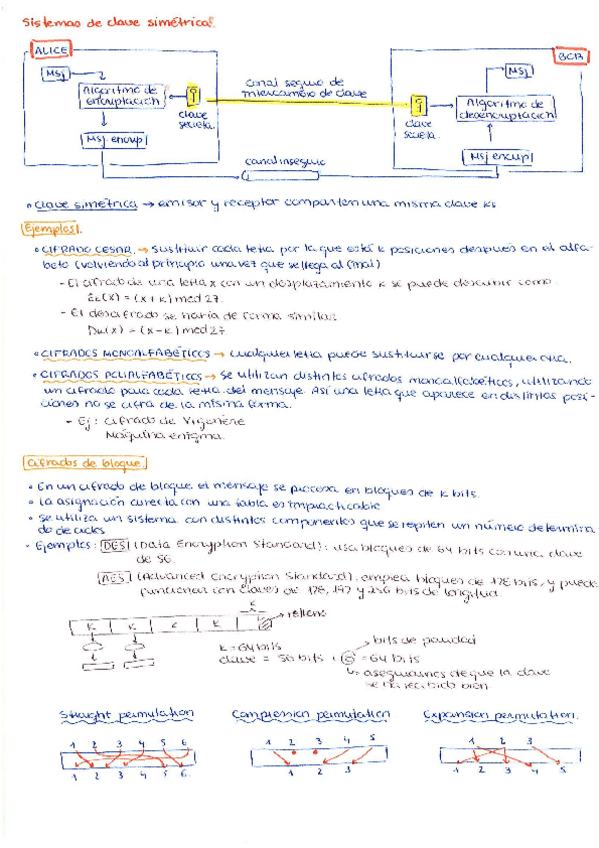 Sistemas de clave simétrica:
ALICE
BOB
Msj
Msj
canal seguro de
intercambio de clave
Algoritmo de
encriptación
Algoritmo de
desencriptación
clave
secreta
clave
secreta.
Msj encrip
Msj encrip
canal inseguro
• clave simétrica → emisor y receptor comparten una misma clave ks
Ejemplos.
• CIFRADO CESAR → sustituir cada letra por la que está k posiciones después en el alfa-
beto (volviendo al principio una vez que se llega al final)
- El cifrado de una letra x con un desplazamiento k se puede describir como
Ek(x) = (x+k) mod 27.
- El descifrado se haría de forma similar.
Dk(x) = (x-k) mod 27
• CIFRADOS MONOALFABÉTICOS → cualquier letra puede sustituirse por cualquier otra.
• CIFRADOS POLIALFABÉTICOS → se utilizan distintos cifrados monoalfabéticos, utilizando
un cifrado para cada letra del mensaje. Así una letra que aparece en distintas posi-
ciones no se cifra de la misma forma.
- Ej: cifrado de Vigenère
Máquina enigma.
Cifrados de bloque.
• En un cifrado de bloque el mensaje se procesa en bloques de k bits.
• la asignación directa con una tabla es impracticable
• se utiliza un sistema con distintos componentes que se repiten un número determina
do de ciclos
• Ejemplos: DES (Data Encryption Standard): usa bloques de 64 bits con una clave
de 56.
AES (Advanced Encryption Standard). emplea bloques de 128 bits, y puede
funcionar con claves de 128, 192 y 256 bits de longitud.
k
relleno
k k k k
k = 64 bits
bits de paridad
clave = 56 bits + 8 = 64 bits
↳ asegurarnos de que la clave
se ha recibido bien.
Straight permutation
Compression permutation
Expansion permutation.
1 2 3 4 5 6
1 2 3 4 5
1 2 3
1 2 3 4 5 6
1 2 3
1 2 3 4 5